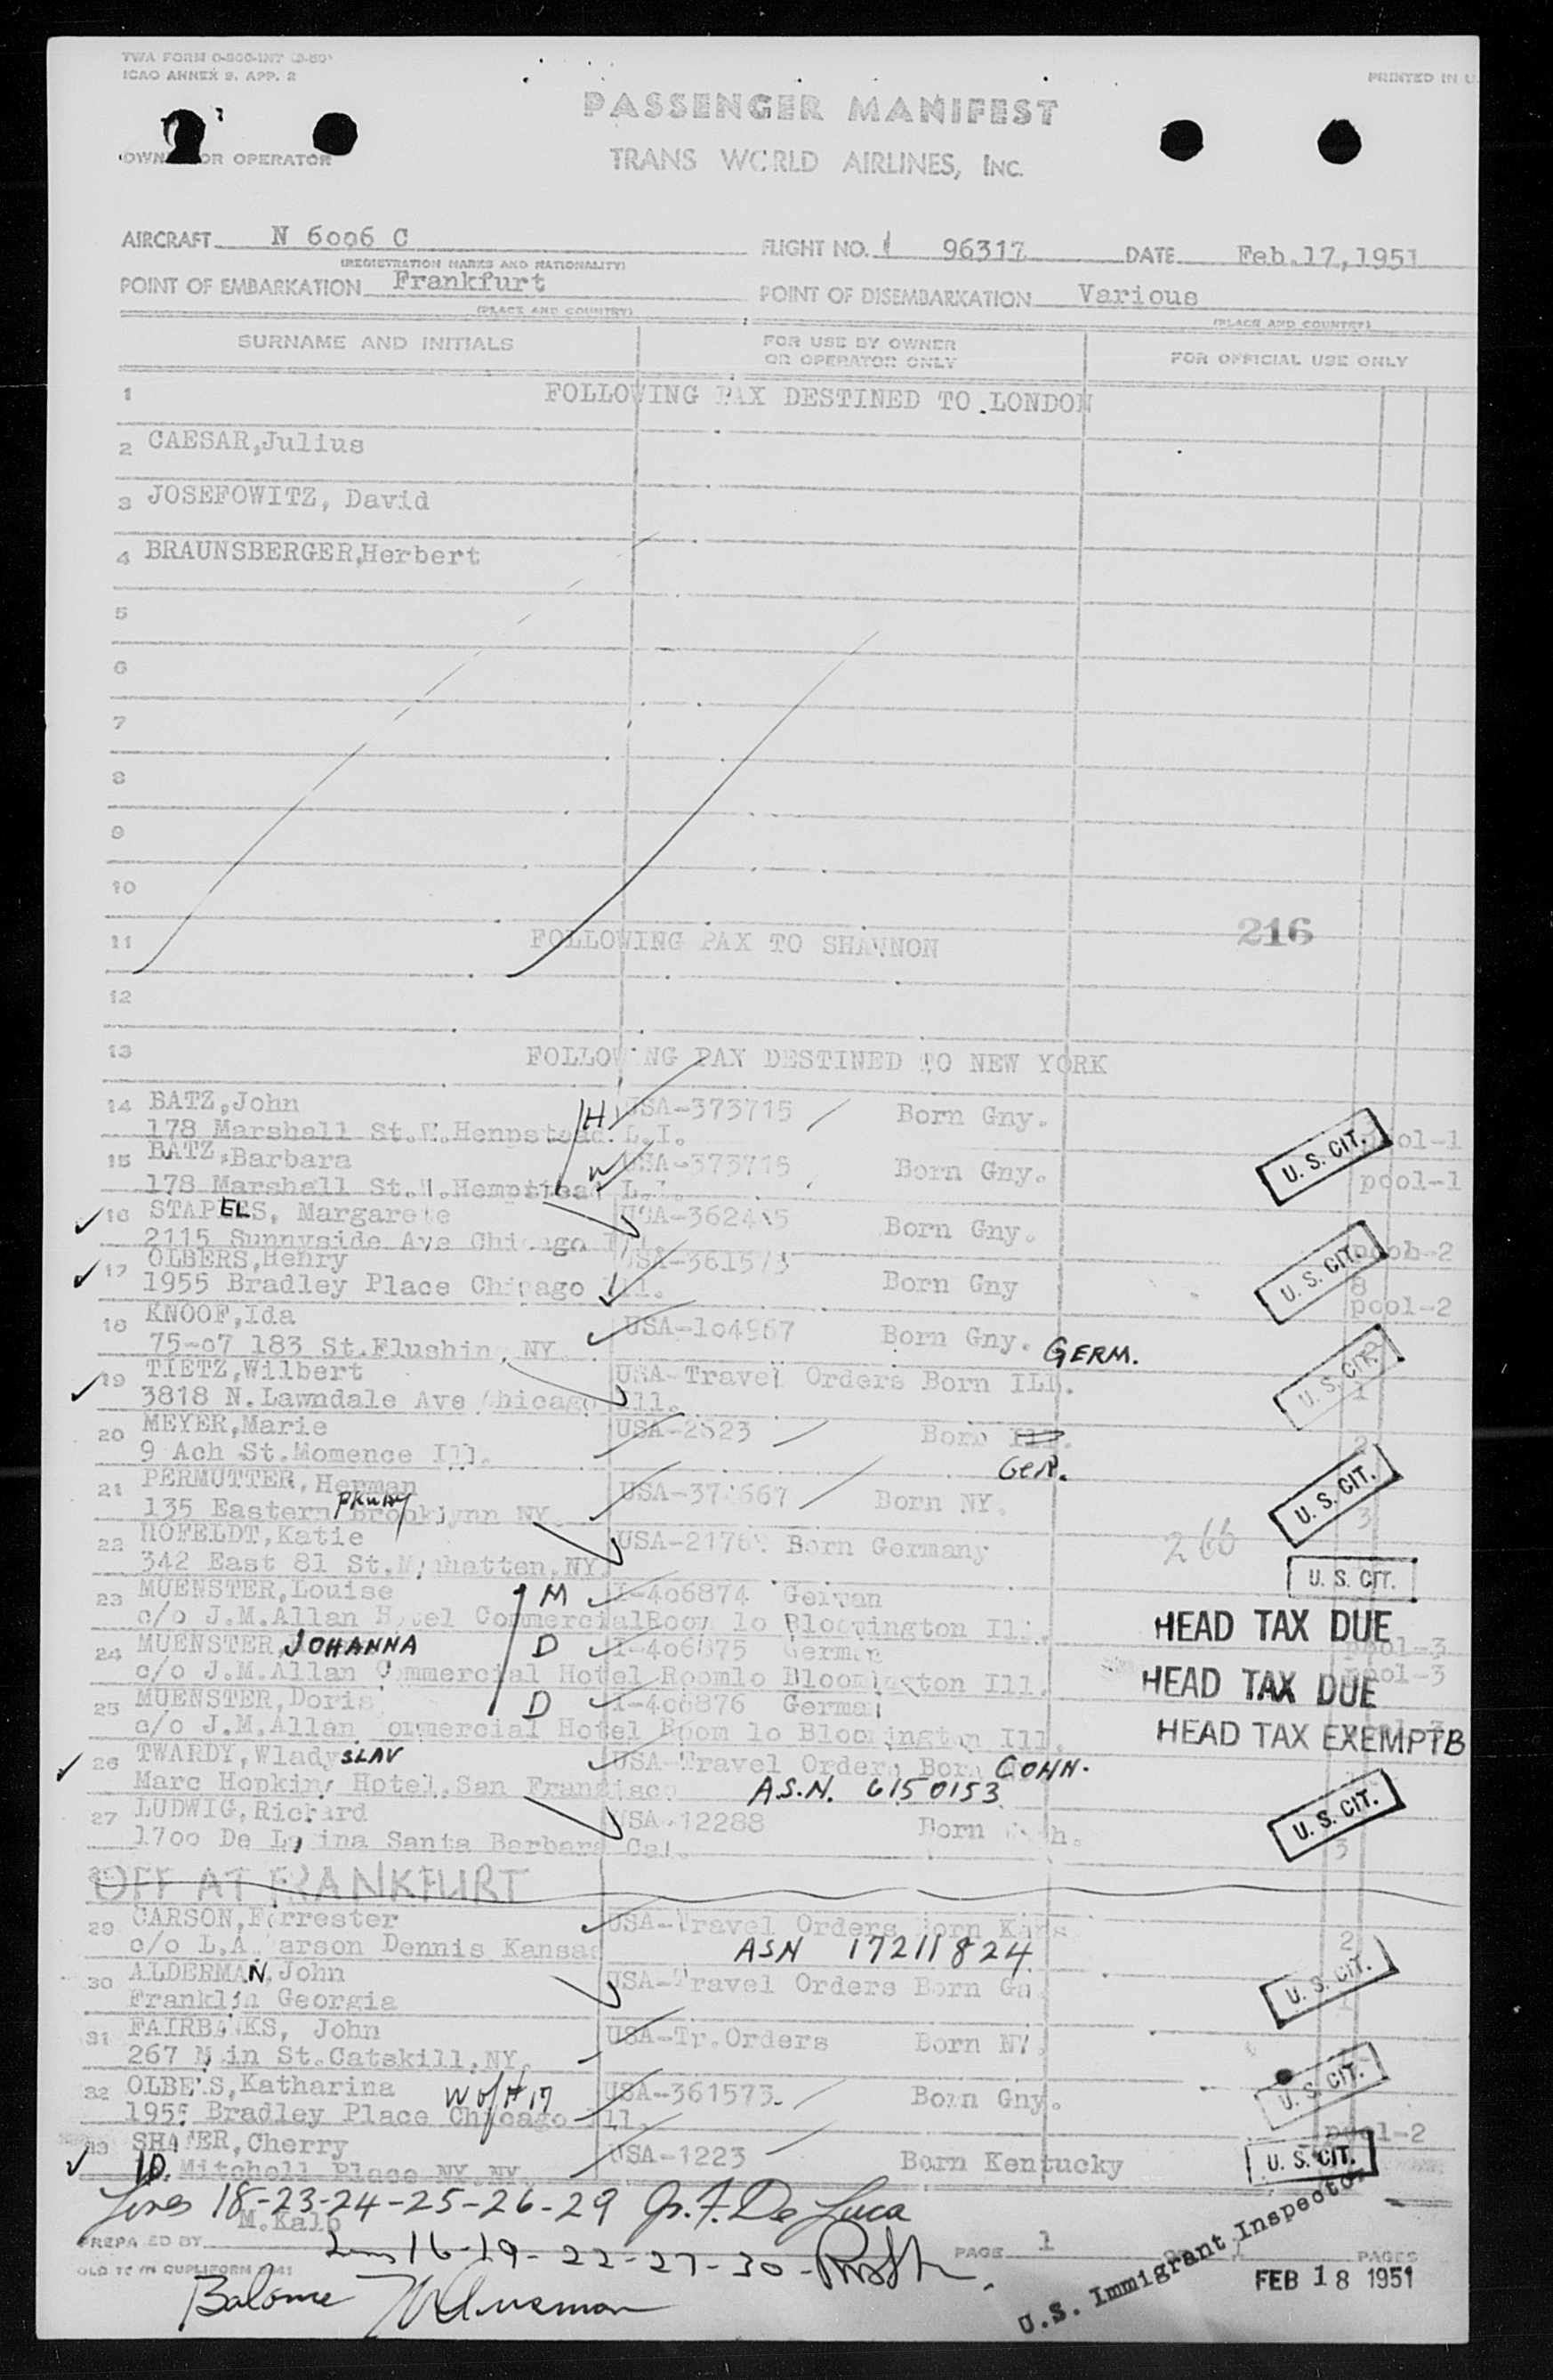 TWA FORM
ICAO ANNEX 9. APP. 2
PRINTED IN U
PASSENGER MANIFEST
OR OPERATOR
TRANS WORLD AIRLINES, INC.
AIRCRAFT N 6006 C FLIGHT NO. 96317 DATE Feb.17,1951
(REGISTRATION MARKS AND NATIONALITY)
POINT OF EMBARKATION Frankfurt POINT OF DISEMBARKATION Various
(PLACE AND COUNTRY) (PLACE AND COUNTRY)
SURNAME AND INITIALS FOR USE BY OWNER OR OPERATOR ONLY FOR OFFICIAL USE ONLY
1 FOLLOWING PAX DESTINED TO LONDON
2 CAESAR,Julius
3 JOSEFOWITZ, David
4 BRAUNSBERGER,Herbert
5
6
7
8
9
10
216
11 FOLLOWING PAX TO SHANNON
12
13 FOLLOWING PAX DESTINED TO NEW YORK
14 BATZ,John H USA-373715 Born Gny.
178 Marshall St.W.Hempstead L.I. U. S. CIT. pool-1
15 BATZ,Barbara W USA-373715 Born Gny.
178 Marshall St.W.Hempstead L.I. pool-1
16 STAPELS, Margarete Born Gny.
2115 Sunnyside Ave Chicago U. S. CIT. -2
17 OLBERS,Henry USA-361573 Born Gny
1955 Bradley Place Chicago Ill. 8 pool-2
18 KNOOF,Ida USA-104967 Born Gny. GERM.
75-07 183 St.Flushing NY.
19 TIETZ,Wilbert USA-Travel Orders Born ILL. U. S. CIT.
3818 N.Lawndale Ave Chicago Ill. 1
20 MEYER,Marie USA-2523 Born Ill. 2
9 Ach St.Momence Ill. GER.
21 PERMUTTER,Herman Born NY. U. S. CIT.
135 Eastern PKWAY Brooklynn NY. 3
22 HOFELDT,Katie Born Germany 266
342 East 81 St.Manhatten,NY U. S. CIT.
23 MUENSTER,Louise M I-406874 German
c/o J.M.Allan Hotel Commercial Room 10 Bloomington Ill. HEAD TAX DUE
24 MUENSTER, JOHANNA D I-406875 German pool-3
c/o J.M.Allan Commercial Hotel Room10 Bloomington Ill. HEAD TAX DUE pool-3
25 MUENSTER,Doris D I-406876 German
c/o J.M.Allan Commercial Hotel Room 10 Bloomington Ill. HEAD TAX EXEMPT B
26 TWARDY,WladySLAV USA-Travel Orders Born CONN.
Marc Hopkins Hotel.San Francisco A.S.N. 6150153
27 LUDWIG,Richard USA-12288 Born U. S. CIT.
1700 De La Vina Santa Barbara Cal. 3
OFF AT FRANKFURT
29 CARSON,Forrester USA-Travel Orders Born Kans
c/o L.A. Carson Dennis Kansas ASN 17211824 2
30 ALDERMAN,John USA-Travel Orders Born Ga. U. S. CIT.
Franklin Georgia 1
31 FAIRBANKS, John USA-Tr.Orders Born NY.
267 Main St.Catskill,NY.
32 OLBERS,Katharina W of #17 USA-361573 Born Gny. U. S. CIT.
1955 Bradley Place Chicago Ill. pool-2
33 SHAFER,Cherry USA-1223 Born Kentucky U. S. CIT.
10 Mitchell Place NY.NY.
Lines 18-23-24-25-26-29 G. F. De Luca
M.Kalb
PREPARED BY PAGE 1 PAGES
Lines 16-19-22-27-30-
Balance
U.S. Immigrant Inspector
FEB 18 1951